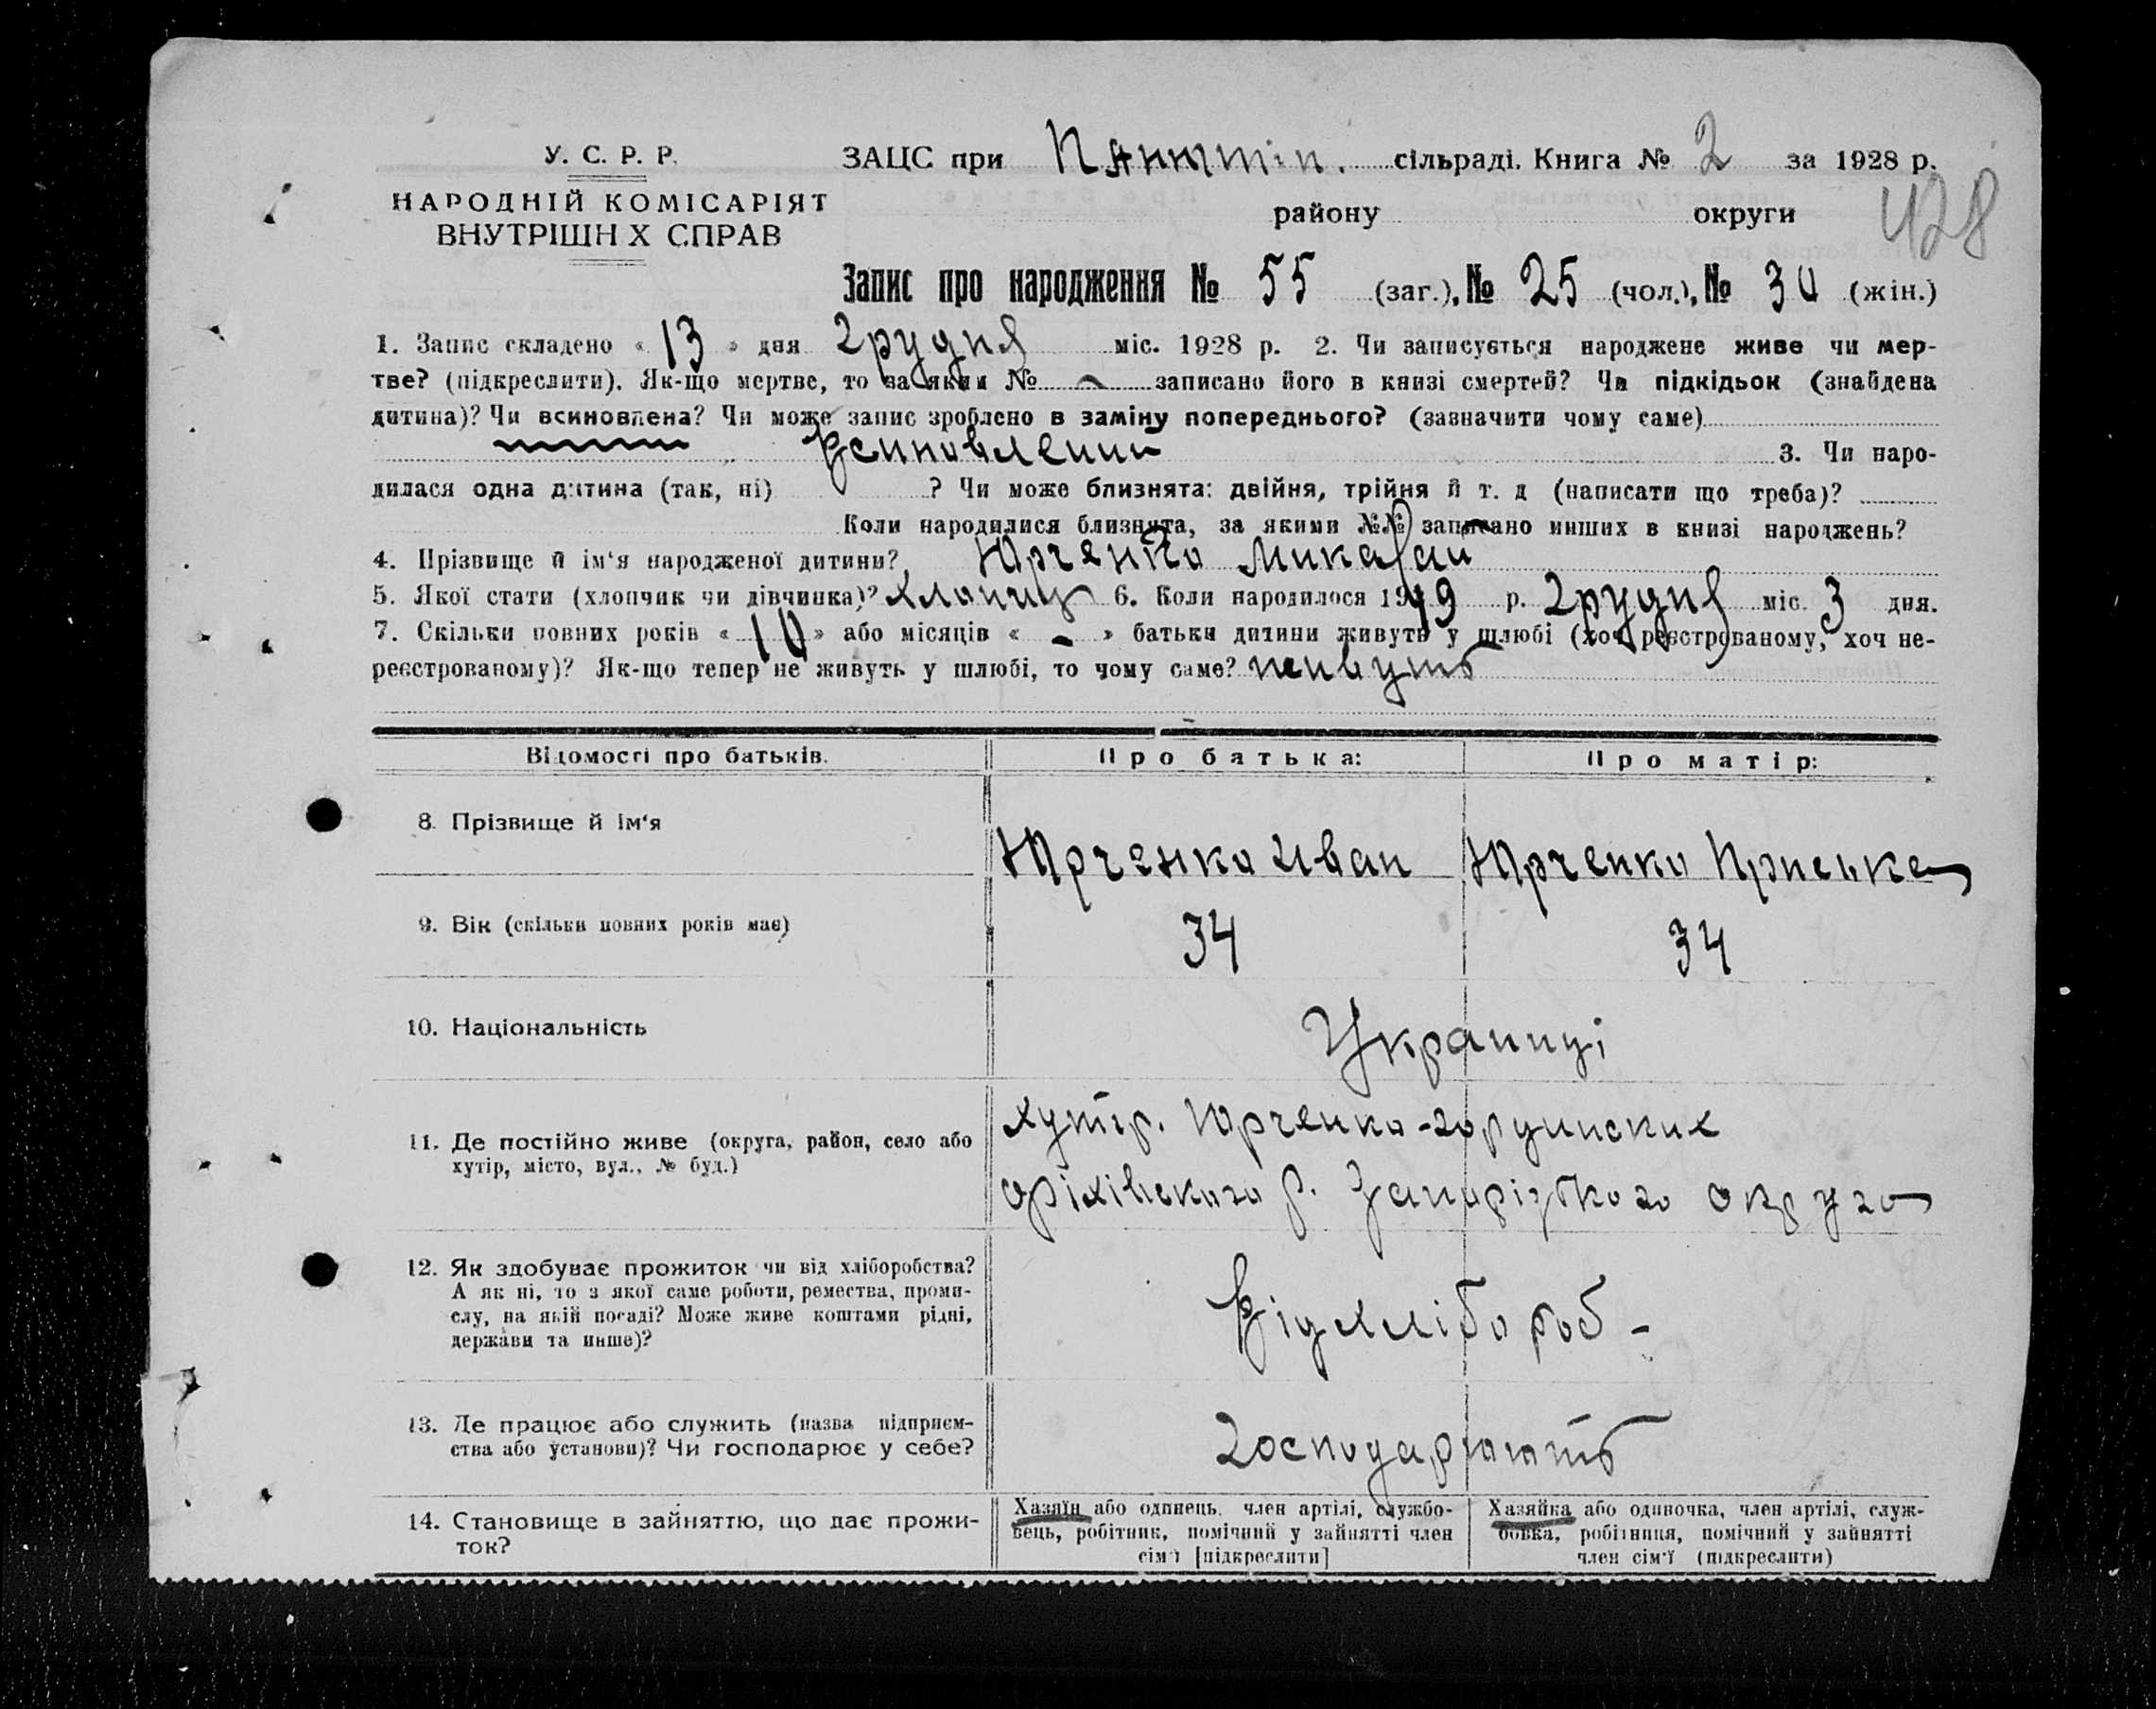 У. С. Р. Р.
НАРОДНІЙ КОМІСАРІЯТ
ВНУТРІШН Х СПРАВ
ЗАЦС при сільраді. Книга № 2 за 1928 р.
району округи 428
Запис про народження № 55 (заг.), № 25 (чол.), № 30 (жін.)
1. Запис складено « 13 » дня грудня міс. 1928 р. 2. Чи записується народжене живе чи мер-
тве? (підкреслити). Як-що мертве, то за яким № записано його в книзі смертей? Чи підкідьок (знайдена
дитина)? Чи всиновлена? Чи може запис зроблено в заміну попереднього? (зазначити чому саме)
Всиновлении 3. Чи наро-
дилася одна дитина (так, ні) ? Чи може близнята: двійня, трійня й т. д (написати що треба)?
Коли народилися близнята, за якими №№ записано инших в книзі народжень?
4. Прізвище й ім'я народженої дитини? Юрченко Микалаи
5. Якої стати (хлопчик чи дівчинка)? хлопчик 6. Коли народилося 1919 р. грудня міс. 3 дня.
7. Скільки повних років « 10 » або місяців « - » батьки дитини живуть у шлюбі (хоч реєстрованому, хоч не-
реєстрованому)? Як-що тепер не живуть у шлюбі, то чому саме?
Відомості про батьків.
Про батька:
Про матір:
8. Прізвище й ім'я
Юрченко Иван
Юрченко Приська
9. Вік (скільки повних років має)
34
34
10. Національність
Украинці
11. Де постійно живе (округа, район, село або
хутір, місто, вул., № буд.)
хутір. Юрченко-
оріхівского р. Запорізького округо
12. Як здобуває прожиток чи від хліборобства?
А як ні, то з якої саме роботи, ремества, проми-
слу, на якій посаді? Може живе коштами рідні,
держави та инше)?
Від хлібо роб -
13. Де працює або служить (назва підприєм-
ства або установи)? Чи господарює у себе?
Господарюють
14. Становище в зайняттю, що дає прожи-
ток?
Хазяїн або одинець, член артілі, службо-
вець, робітник, помічний у зайнятті член
сім'ї [підкреслити]
Хазяйка або одиночка, член артілі, служ-
бовка, робітниця, помічний у зайнятті
член сім'ї (підкреслити)